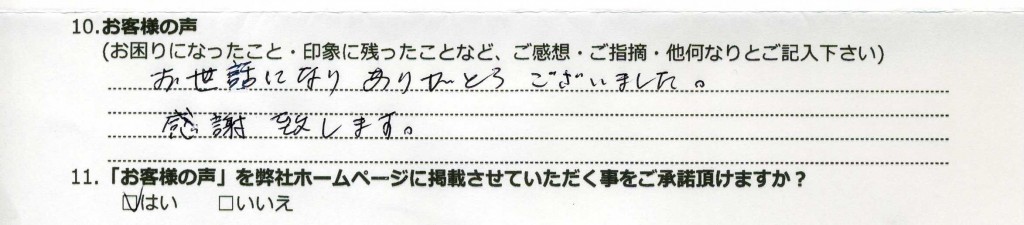 10.お客様の声
(お困りになったこと・印象に残ったことなど、ご感想・ご指摘・他何なりとご記入下さい)
お世話になり ありがとう ございました。
感謝 致します。
11.「お客様の声」を弊社ホームページに掲載させていただく事をご承諾頂けますか？
☑はい □いいえ